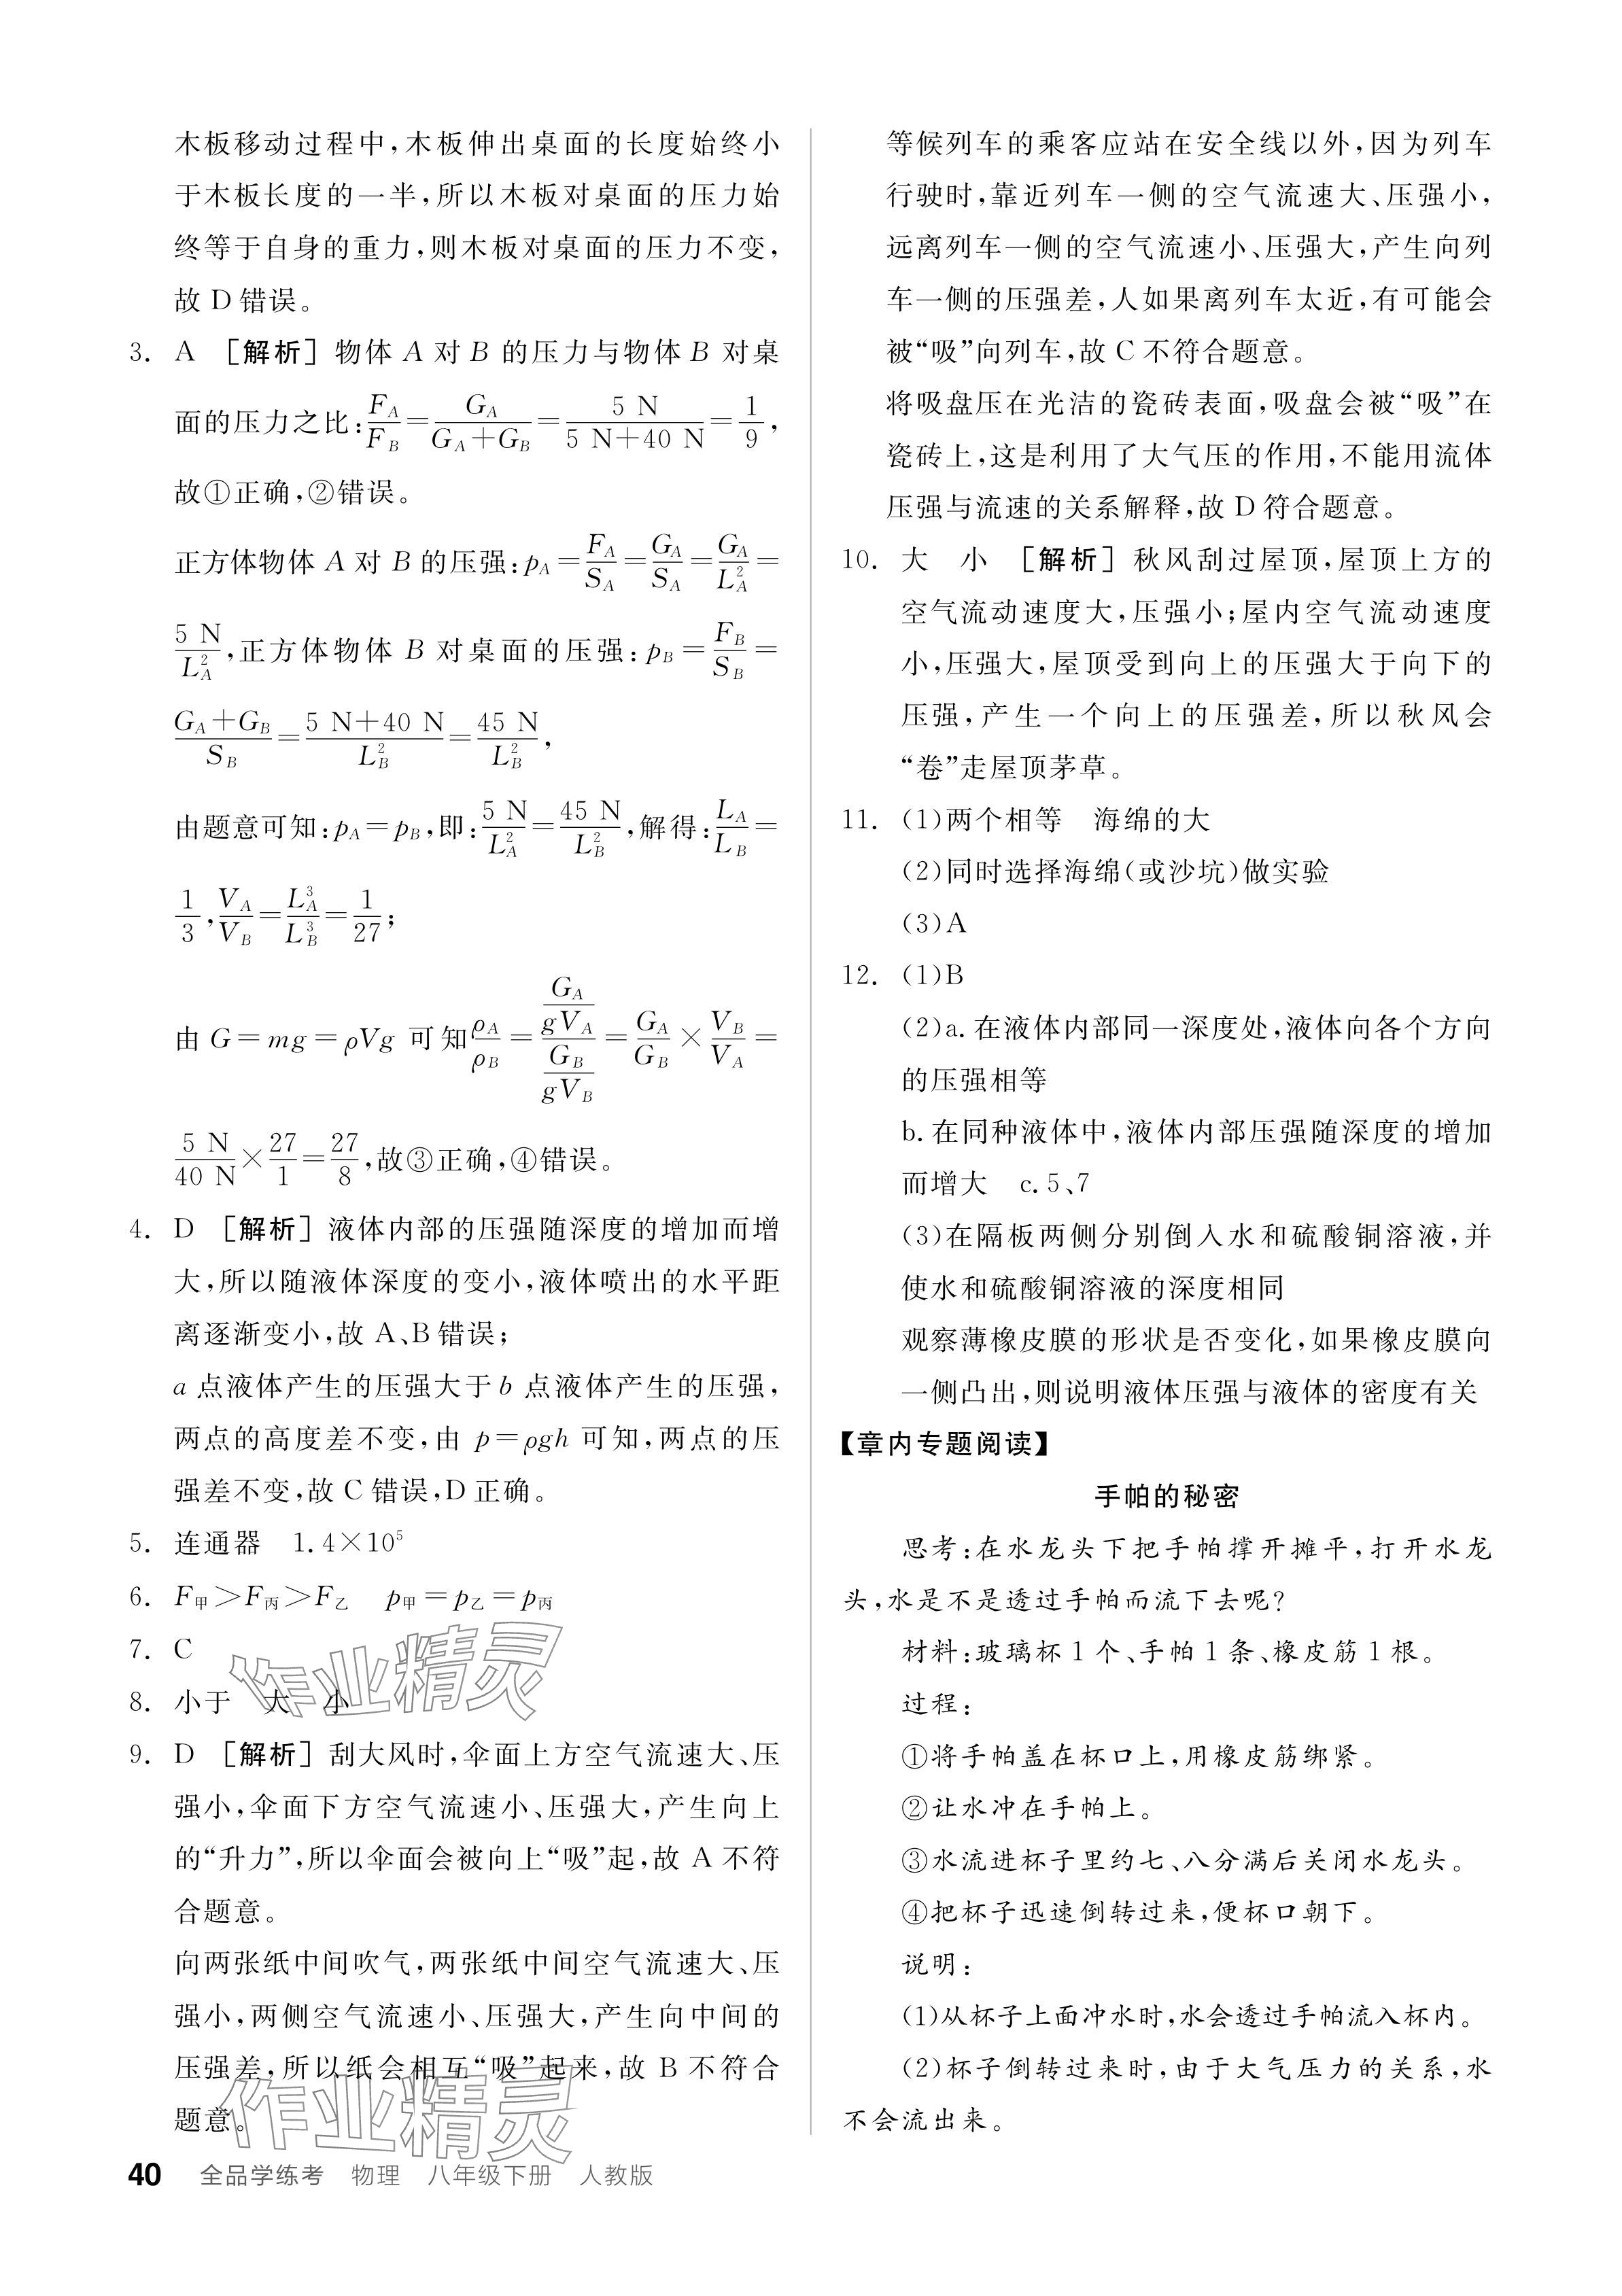 木板移动过程中,木板伸出桌面的长度始终小
于木板长度的一半,所以木板对桌面的压力始
终等于自身的重力,则木板对桌面的压力不变,
故 D 错误。
3. A [解析] 物体 A 对 B 的压力与物体 B 对桌
面的压力之比:F_A/F_B=G_A/(G_A+G_B)=5 N/(5 N+40 N)=1/9,
故①正确,②错误。
正方体物体 A 对 B 的压强:p_A=F_A/S_A=G_A/S_A=G_A/L_A²=
5 N/L_A²,正方体物体 B 对桌面的压强:p_B=F_B/S_B=
(G_A+G_B)/S_B=(5 N+40 N)/L_B²=45 N/L_B²,
由题意可知:p_A=p_B,即:5 N/L_A²=45 N/L_B²,解得:L_A/L_B=
1/3,V_A/V_B=L_A³/L_B³=1/27;
由 G=mg=ρVg 可知ρ_A/ρ_B=(G_A/gV_A)/(G_B/gV_B)=G_A/G_B×V_B/V_A=
5 N/40 N×27/1=27/8,故③正确,④错误。
4. D [解析] 液体内部的压强随深度的增加而增
大,所以随液体深度的变小,液体喷出的水平距
离逐渐变小,故 A、B 错误;
a 点液体产生的压强大于 b 点液体产生的压强,
两点的高度差不变,由 p=ρgh 可知,两点的压
强差不变,故 C 错误,D 正确。
5. 连通器 1.4×10⁵
6. F甲>F丙>F乙 p甲=p乙=p丙
7. C
8. 小于 大 小
9. D [解析] 刮大风时,伞面上方空气流速大、压
强小,伞面下方空气流速小、压强大,产生向上
的“升力”,所以伞面会被向上“吸”起,故 A 不符
合题意。
向两张纸中间吹气,两张纸中间空气流速大、压
强小,两侧空气流速小、压强大,产生向中间的
压强差,所以纸会相互“吸”起来,故 B 不符合
题意。
作业精灵
作业精灵
40 全品学练考 物理 八年级下册 人教版
等候列车的乘客应站在安全线以外,因为列车
行驶时,靠近列车一侧的空气流速大、压强小,
远离列车一侧的空气流速小、压强大,产生向列
车一侧的压强差,人如果离列车太近,有可能会
被“吸”向列车,故 C 不符合题意。
将吸盘压在光洁的瓷砖表面,吸盘会被“吸”在
瓷砖上,这是利用了大气压的作用,不能用流体
压强与流速的关系解释,故 D 符合题意。
10. 大 小 [解析] 秋风刮过屋顶,屋顶上方的
空气流动速度大,压强小;屋内空气流动速度
小,压强大,屋顶受到向上的压强大于向下的
压强,产生一个向上的压强差,所以秋风会
“卷”走屋顶茅草。
11. (1)两个相等 海绵的大
(2)同时选择海绵(或沙坑)做实验
(3)A
12. (1)B
(2)a. 在液体内部同一深度处,液体向各个方向
的压强相等
b. 在同种液体中,液体内部压强随深度的增加
而增大 c. 5、7
(3)在隔板两侧分别倒入水和硫酸铜溶液,并
使水和硫酸铜溶液的深度相同
观察薄橡皮膜的形状是否变化,如果橡皮膜向
一侧凸出,则说明液体压强与液体的密度有关
【章内专题阅读】
手帕的秘密
思考:在水龙头下把手帕撑开摊平,打开水龙
头,水是不是透过手帕而流下去呢?
材料:玻璃杯 1 个、手帕 1 条、橡皮筋 1 根。
过程:
①将手帕盖在杯口上,用橡皮筋绑紧。
②让水冲在手帕上。
③水流进杯子里约七、八分满后关闭水龙头。
④把杯子迅速倒转过来,便杯口朝下。
说明:
(1)从杯子上面冲水时,水会透过手帕流入杯内。
(2)杯子倒转过来时,由于大气压力的关系,水
不会流出来。